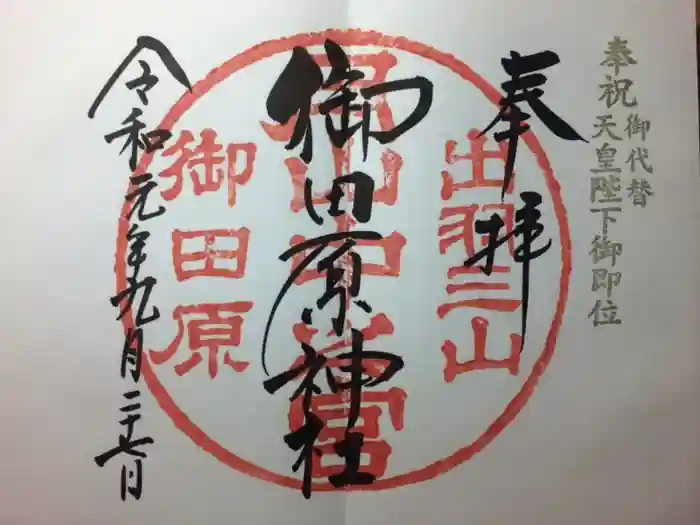 奉祝 御代替
天皇陛下御即位
奉拝
出羽三山
御田原神社
月山中之宮
御田原
令和元年九月二十七日